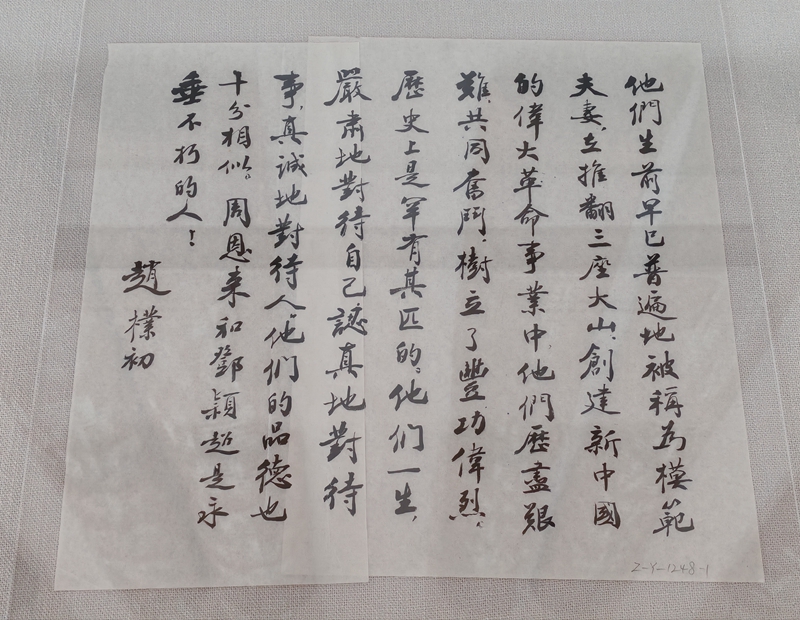 他們生前早已普遍地被稱为模範
夫妻，在推翻三座大山，創建新中國
的偉大革命事業中，他們歷盡艱
難，共同奮鬥，樹立了豐功偉烈，
歷史上是罕有其匹的。他们一生，
嚴肅地對待自己，認真地對待
事，真诚地對待人。他们的品德也
十分相似。周恩来和鄧颖超是永
垂不朽的人！
趙樸初
Z-Y-1248-1